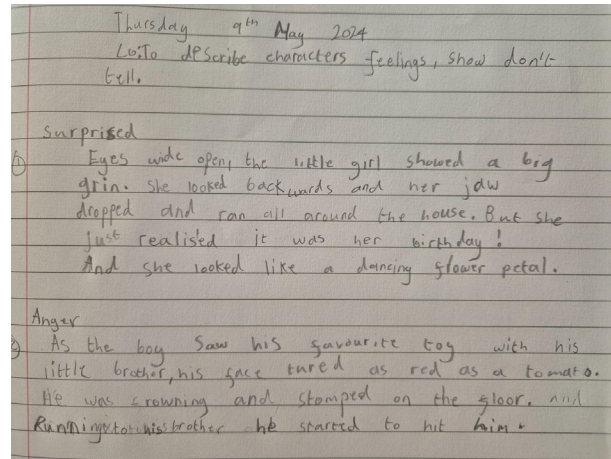 Thursday 9th May 2024
Lo: To describe characters feelings, show don't
tell.
Surprised
① Eyes wide open, the little girl showed a big
grin. She looked backwards and her jaw
dropped and ran all around the house. But she
just realised it was her birthday!
And she looked like a dancing flower petal.
Anger
② As the boy saw his favourite toy with his
little brother, his face tured as red as a tomato.
He was crowning and stomped on the floor. and
Running to his brother he started to hit him.